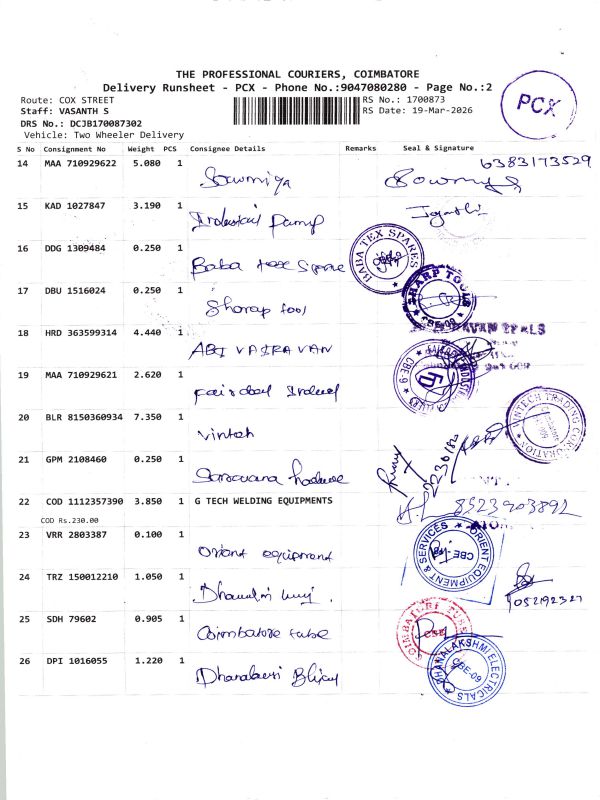 THE PROFESSIONAL COURIERS, COIMBATORE
Delivery Runsheet - PCX - Phone No.:9047080280 - Page No.:2
PCX
Route: COX STREET
RS No.: 1700873
Staff: VASANTH S
RS Date: 19-Mar-2026
DRS No.: DCJB170087302
Vehicle: Two Wheeler Delivery
S No Consignment No Weight PCS Consignee Details Remarks Seal & Signature
6383173529
14 MAA 710929622 5.080 1 Sowmiya
15 KAD 1027847 3.190 1 Industrial Pump
16 DDG 1309484 0.250 1 Baba tex Spare BABA TEX SPARES
17 DBU 1516024 0.250 1 Sharap tool SHARP TOOLS CBE-09
18 HRD 363599314 4.440 1 ABI VAIRAVAN
19 MAA 710929621 2.620 1 Fairdeal CBE-9
20 BLR 8150360934 7.350 1 Vintech
21 GPM 2108460 0.250 1 Saravana
22 COD 1112357390 3.850 1 G TECH WELDING EQUIPMENTS 8523903892
COD Rs.230.00
23 VRR 2803387 0.100 1 Orient equipment ORIENT EQUIPMENT & SERVICES CBE-
24 TRZ 150012210 1.050 1
25 SDH 79602 0.905 1 Coimbatore tube
26 DPI 1016055 1.220 1 DHANALAKSHMI ELECTRICALS CBE-09